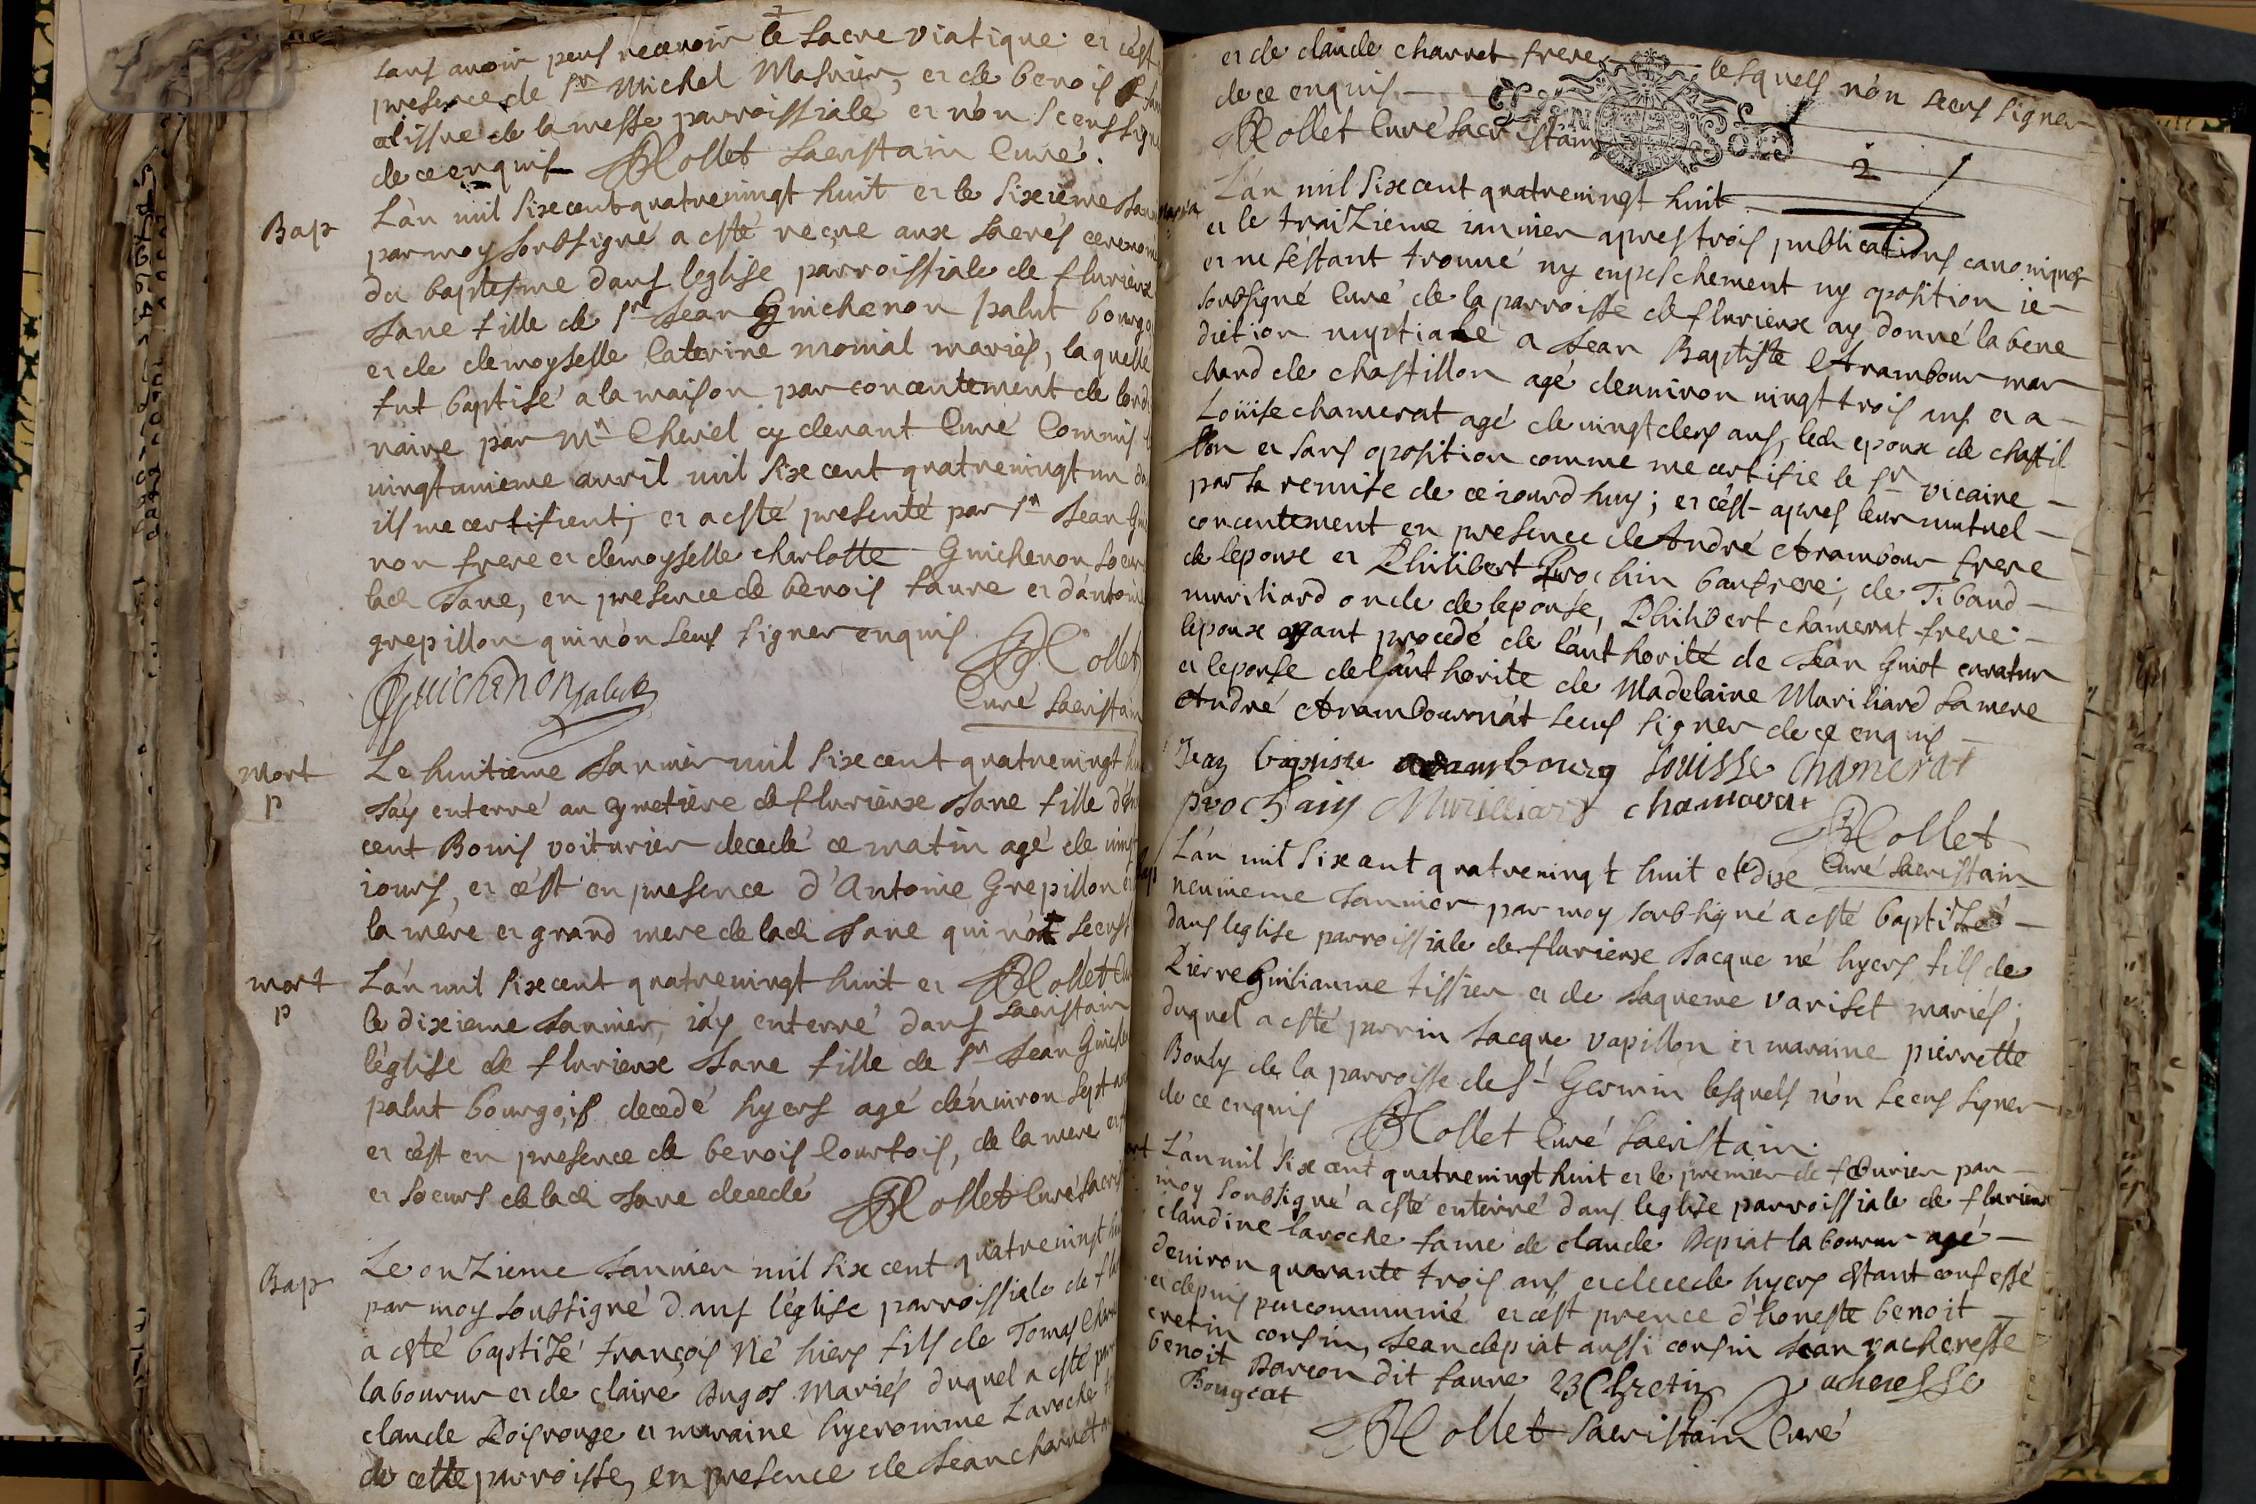 sans avoir peus recevoir le sacre viatique. et c'est
presence de Sr Michel Masnier, et de benois
a l'issue de la messe parroissiale et n'on sceus signe
de ce enquis Rollet Sacristain Curé.
Bap
L'an mil six cent quatrevingt huit et le sixieme Jan
par moy soubsigné a esté reçue aux sacrés ceremon
du baptesme dans leglise parroissiale de flurieux
Jane fille de Sr Jean Guichenon palut bourgo
et de demoyselle Caterine monial mariés, la quelle
fut baptisé a la maison par concentement de lordi
naire par Mr Cheviel cy devant Curé Commis
vingt unieme avril mil six cent quatrevingt un
ils me certifient; et a esté presenté par Sr Jean Gui
non frere et demoyselle charlotte Guichenon soeur
lad Jane, en presence de benois faure et d'antoine
grepillon qui n'on seus signer enquis
Rollet
Curé Sacristain
Guichenon palut
Mort
p
Le huitieme Janvier mil six cent quatrevingt hu
J'ay enterré au cymetiere de flurieux Jane fille d'in
cent Bonis voiturier decedé ce matin agé de vingt
iours, et c'est en presence d'Antoine Grepillon et
la mere et grand mere de lad Jane qui n'ot sceust
mort
p
L'an mil six cent quatrevingt huit et Rollet Cur
Sacristain
le dixieme Janvier, i'ay enterré dans
l'église de flurieux Jane fille de Sr Jean Guiche
palut bourgois decedé hyers agé d'environ sept an
et c'est en presence de benois Courtois, de la mere et
et soeurs de lad Jane decedé Rollet Curé Sacris
Bap
Le onzieme Janvier mil six cent quatrevingt hu
par moy soussigné dans l'église parroissiale de flu
a esté baptizé françois Né hiers fils de Tomas Char
laboureur et de claire Bugos Mariés duquel a esté par
claude Poisrouge et maraine hyeronime Laroche
de cette parroisse, en presence de Jean charret
et de claude charret frere lesquels n'on sceus signer
de ce enquis
Rollet Curé Sacristain
2
L'an mil six cent quatrevingt huit
et le traizieme ianvier apres trois publications canoniques
et ne s'estant trouvé ny enpeschement ny oposition ie
soubsigné Curé de la parroisse de flurieux ay donné la bene
diction nuptiale a Jean Baptiste Arambour mar
chand de chastillon agé denviron vingt trois ans et a
Loüise chamerat agé de vingt deus ans, led epoux de chastil
lon et sans oposition comme me certifie le Sr vicaire
par sa remise de ce iourd huy; et c'est apres leur mutuel
concentement en presence de André Arambour frere
de lepoux et Philibert Prochin baufrere, de Tibaud
muriliard oncle de lepouse, Philibert chamerat frere
lepoux ayant procedé de l'authorité de Jean Guiot curatur
et lepouse de l'authorite de Madelaine Muriliard sa mere
André Arambour n'at seus signer de ce enquis
Jean baptiste arambourg Louisse Chamerat
prochain Murilliard chamerat
Rollet
Curé Sacristain
L'an mil six cent quatrevingt huit et le dix
neuvieme Janvier par moy soubsigné a esté baptizé
dans leglise parroissiale de flurieux Jacque né hyers fils de
Pierre Guiliaume tissier et de Jaqueme variset mariés;
duquel a esté parrin Jacque vapillon et maraine pierrette
Bouly de la parroisse de St Germin lesquels n'on sceus signer
de ce enquis Rollet Curé Sacristain.
L'an mil six cent quatrevingt huit et le premier de feburier par
moy soubsigné a esté enterré dans leglise parroissiale de flurieux
claudine laroche fame de claude Depiat laboureur agé
denviron quarante trois ans, et decede hyers estant confessé
et depuis peu communié et c'est prence d'honeste benoit
cretin consin, Jean depiat aussi consin Jean vacheresse
benoit Darcon dit faure B Chretin vacheresse
Bougeat
Rollet Sacristain Curé